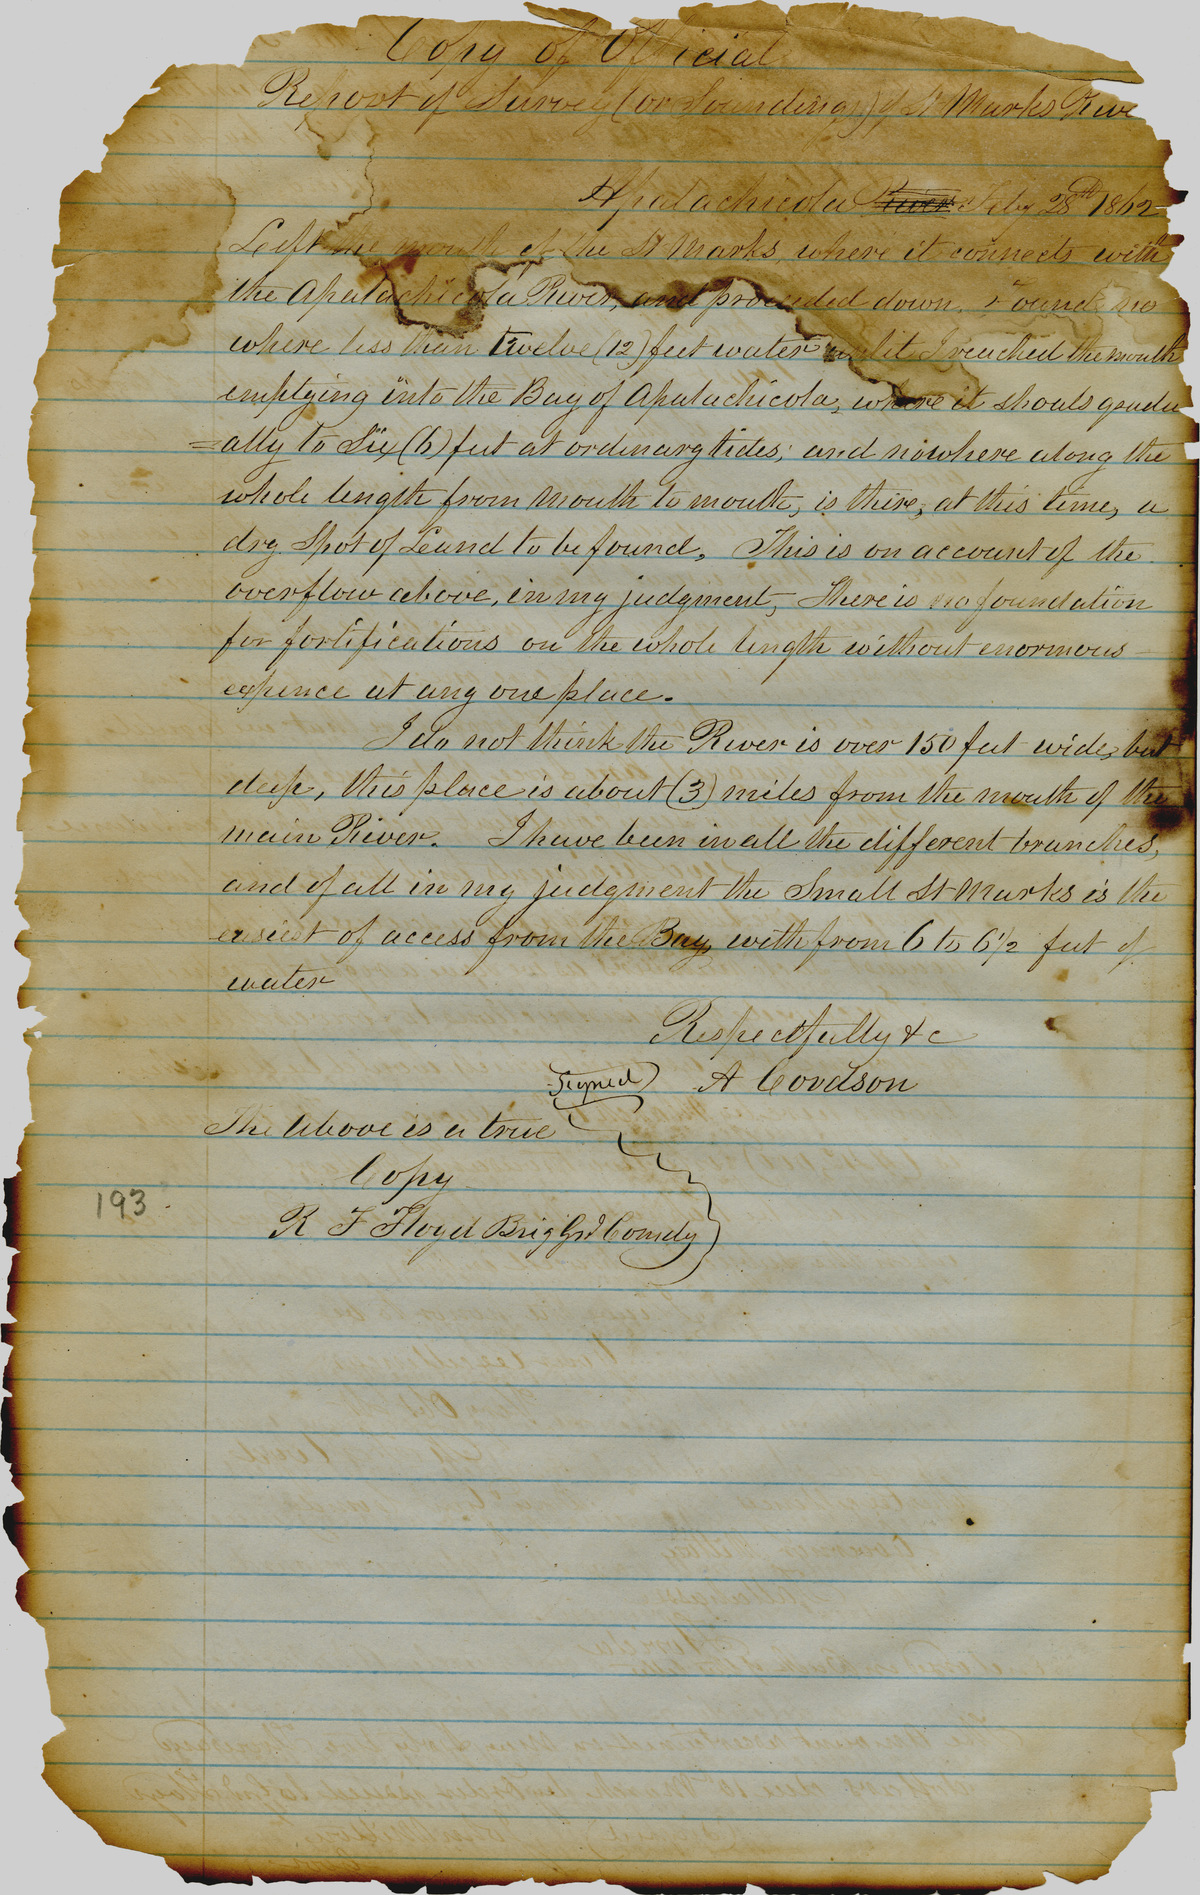 Copy of Official
Report of Survey (or Soundings) of St Marks Rive
Apalachicola River Feby 28th 1862
Left the mouth of the St Marks, where it connects with
the Apalachicola River, and proceeded down. Found no
where less than twelve (12) feet water untill I reached the mouth
emptying into the Bay of Apalachicola, where it shoals gradu
=ally to Six (6) feet at ordinary tides; and nowhere along the
whole length from mouth to mouth, is there, at this time, a
dry Spot of Land to be found. This is on account of the
overflow above, in my judgment, There is no foundation
for fortifications on the whole length without enormous
expence at any one place.
I do not think the River is over 150 feet wide, but
deep, this place is about (3) miles from the mouth of the
main River. I have been in all the different branches,
and of all in my judgment the Small St Marks is the
easiest of access from the Bay, with from 6 to 6 1/2 feet of
water
Respectfully &c
Signed) A
The above is a true
Copy
R F Floyd Brig Genl Comdg
193